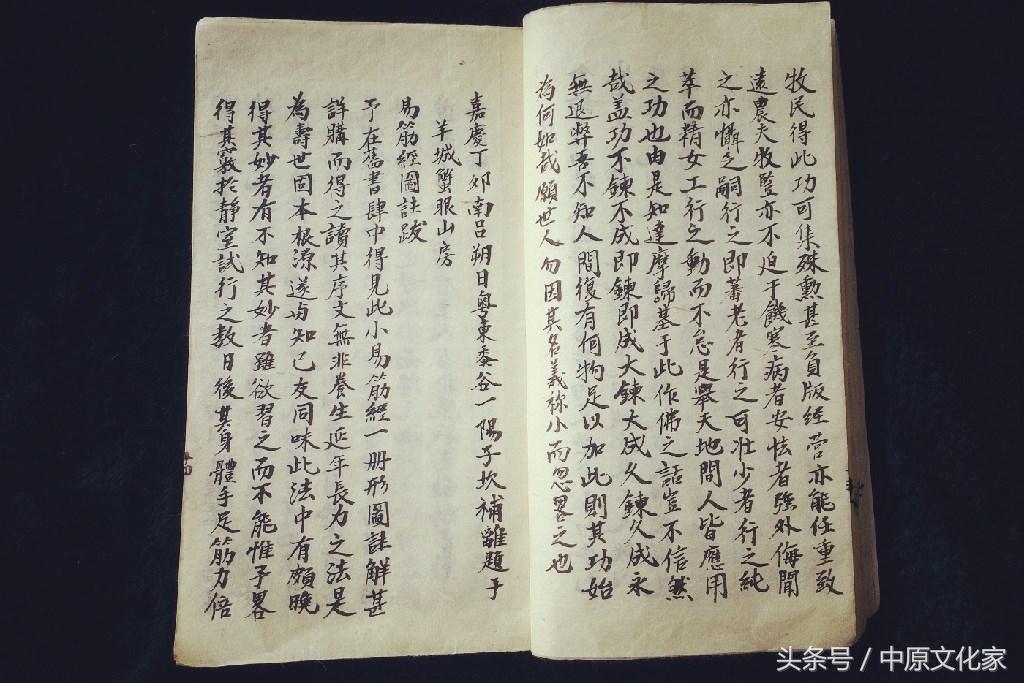 牧民得此功可集殊勳甚至負版經營亦能任重致
遠農夫牧豎亦不迫于饑寒病者安怯者強外侮聞
之亦懾乏嗣行之即蕃老者行之可壯少者行之純
萃而精女工行之動而不怠是舉天地間人皆應用
之功也由是知達摩歸基于此作佛之話豈不信然
哉蓋功不鍊不成即鍊即成大鍊大成久鍊久成永
無退弊吾不知人間復有何物足以加此則其功始
為何如哉願世人勿因其名義称小而忽畧之也
嘉慶丁夘南呂朔日粵東黍谷一陽子坎補離題于
羊城蟹眼山房
易筋經圖註跋
予在舊書肆中得見此小易筋經一册形圖註解甚
詳購而得之讀其序文無非養生延年長力之法是
為壽世固本根源遂与知己友同味此法中有頗曉
得其妙者有不知其妙者雖欲習之而不能惟予畧
得其竅於靜室試行之数日後其身體手足筋力倍
头条号／中原文化家